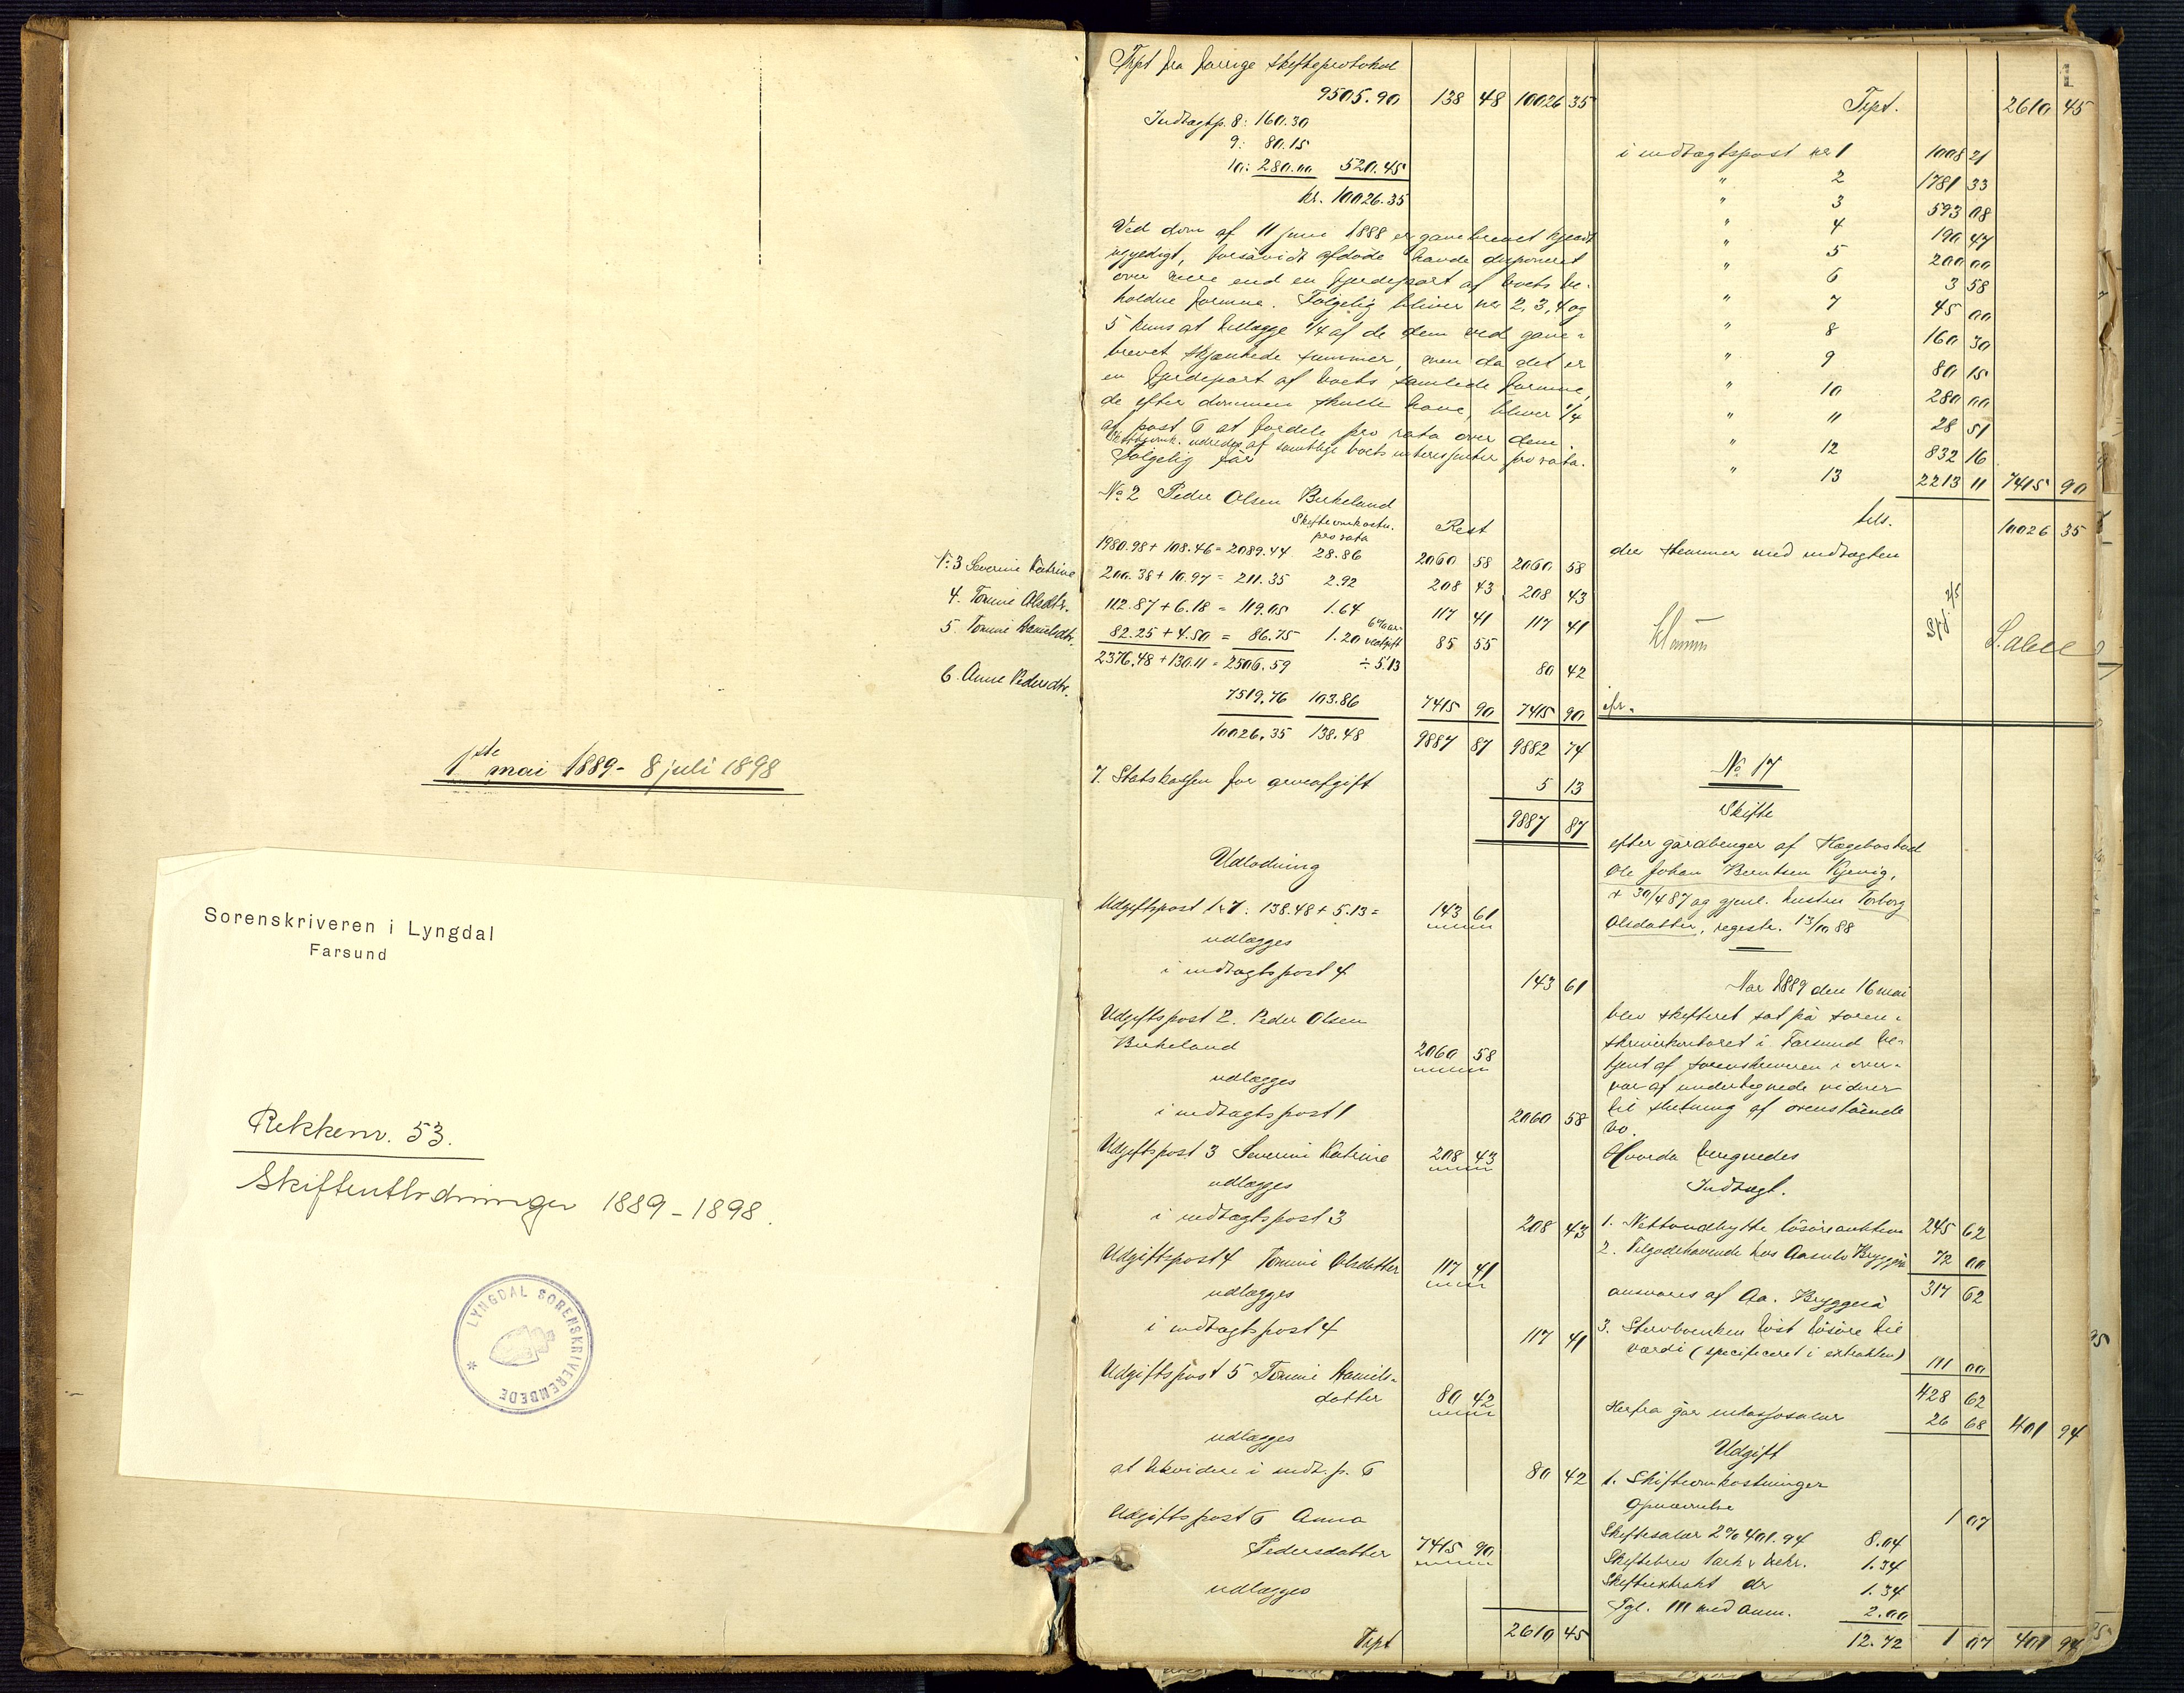 1ste mai 1889 - 8 juli 1898
Sorenskriveren i Lyngdal
Farsund
Rekkenr. 53.
Skifteutlodninger 1889-1898.
LYNGDAL SORENSKRIVEREMBEDE *
No 3 Severine Katrine
4. Tomine Olsdtr.
5. Tomine Danielsdtr.
6. Anne Pedersdtr.
Trpt fra forrige skifteprotokol
9505.90 138 48 10026 35
Indtægtp. 8: 160.30
9: 80.15
10: 280.00 520.45
kr. 10026.35
Ved dom af 11 juni 1888 er gavebrevet kjendt
ugyldigt, forsåvidt afdöde havde disponeret
over mere end en fjerdepart af boets be-
holdne formue. Fölgelig bliver no 2, 3, 4 og
5 kuns at tillægge 1/4 af de dem ved gave-
brevet skjænkede summer, men da det er
en fjerdepart af boets samlede formue,
de efter dommen skulle have, bliver 1/4
af post 6 at fordele pro rata over dem.
Skifteomk. udredes af samtlige boets interessenter pro rata.
Fölgelig får
No 2 Peder Olsen Birkeland
Skifteomkostn. pro rata Rest
1980.98 + 108.46 = 2089.44 28.86 2060 58 2060 58
200.38 + 10.97 = 211.35 2.92 208 43 208 43
112.87 + 6.18 = 119.05 1.64 117 41 117 41
82.25 + 4.50 = 86.75 1.20 85 55
2376.48 + 130.11 = 2506.59 ÷ 5.13 80 42
7519.76 103.86 7415 90 7415 90
10026.35 138.48 9887 87 9882 74
7. Statskassen for arveafgift 5 13
9887 87
Udlodning
Udgiftspost 1 & 7: 138.48 + 5.13 = 143 61
udlægges
i indtægtspost 4 143 61
Udgiftspost 2. Peder Olsen
Birkeland 2060 58
udlægges
i indtægtspost 1 2060 58
Udgiftspost 3 Severine Katrine 208 43
udlægges
i indtægtspost 3 208 43
Udgiftspost 4 Tomine Olsdatter 117 41
udlægges
i indtægtspost 4 117 41
Udgiftspost 5 Tomine Daniels-
datter 80 42
udlægges
at likvidere i indt. p. 6 80 42
Udgiftspost 6 Anna
Pedersdatter 7415 90
udlægges
Trpt 2610 45
1
Trpt. 2610 45
i indtægtspost no 1 1008 21
" 2 1781 33
" 3 593 08
" 4 190 47
" 5 200 00
" 6 3 58
" 7 45 00
" 8 160 30
" 9 80 15
" 10 280 00
" 11 28 51
" 12 832 16
" 13 2213 11 7415 90
tils. 10026 35
der stemmer med indtægten
S. Abel
No 17
Skifte
efter gårdbruger af Hægebostad
Ole Johan Berntsen Kjenig,
+ 30/4 87 og gjenl. hustru Torborg
Olsdatter, registr. 13/10 88
Aar 1889 den 16 mai
blev skifteret sat på soren-
skriverkontoret i Farsund be-
tjent af sorenskriveren i over-
vær af undertegnede vidner
til slutning af ovenstående
bo.
Hvorda beregnedes
Indtægt.
1. Nettoudbytte, lösöreauktion 245 62
2. Tilgodehavende hos Aasulv Bryggeså 72 00
ansvares af Aa. Bryggeså 317 62
3. Stervboenken löst lösöre til
værdi (specificeret i extrakten) 111 00
428 62
Herfra går inkassosalær 26 68 401 94
Udgift
1. Skifteomkostninger
Opnævnelse 1 07
Skiftesalær 2% 401.94 8.04
Skiftebrev 1 ark & bekr. 1.34
Skifteextrakt do 1.34
Tgl. 111 med anm. 2.00
12.72 1 07 401 94